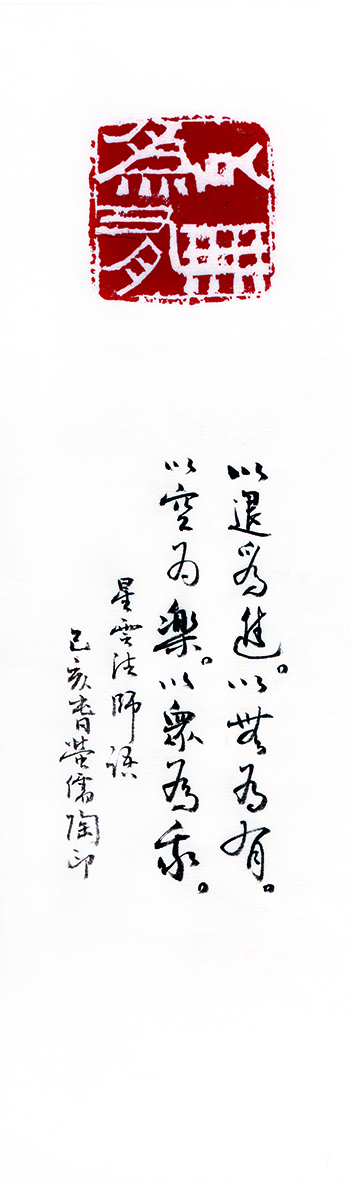 以無
為有
以退為進。以無為有。
以空为樂。以眾為我。
星雲法師語
己亥春 儒陶印